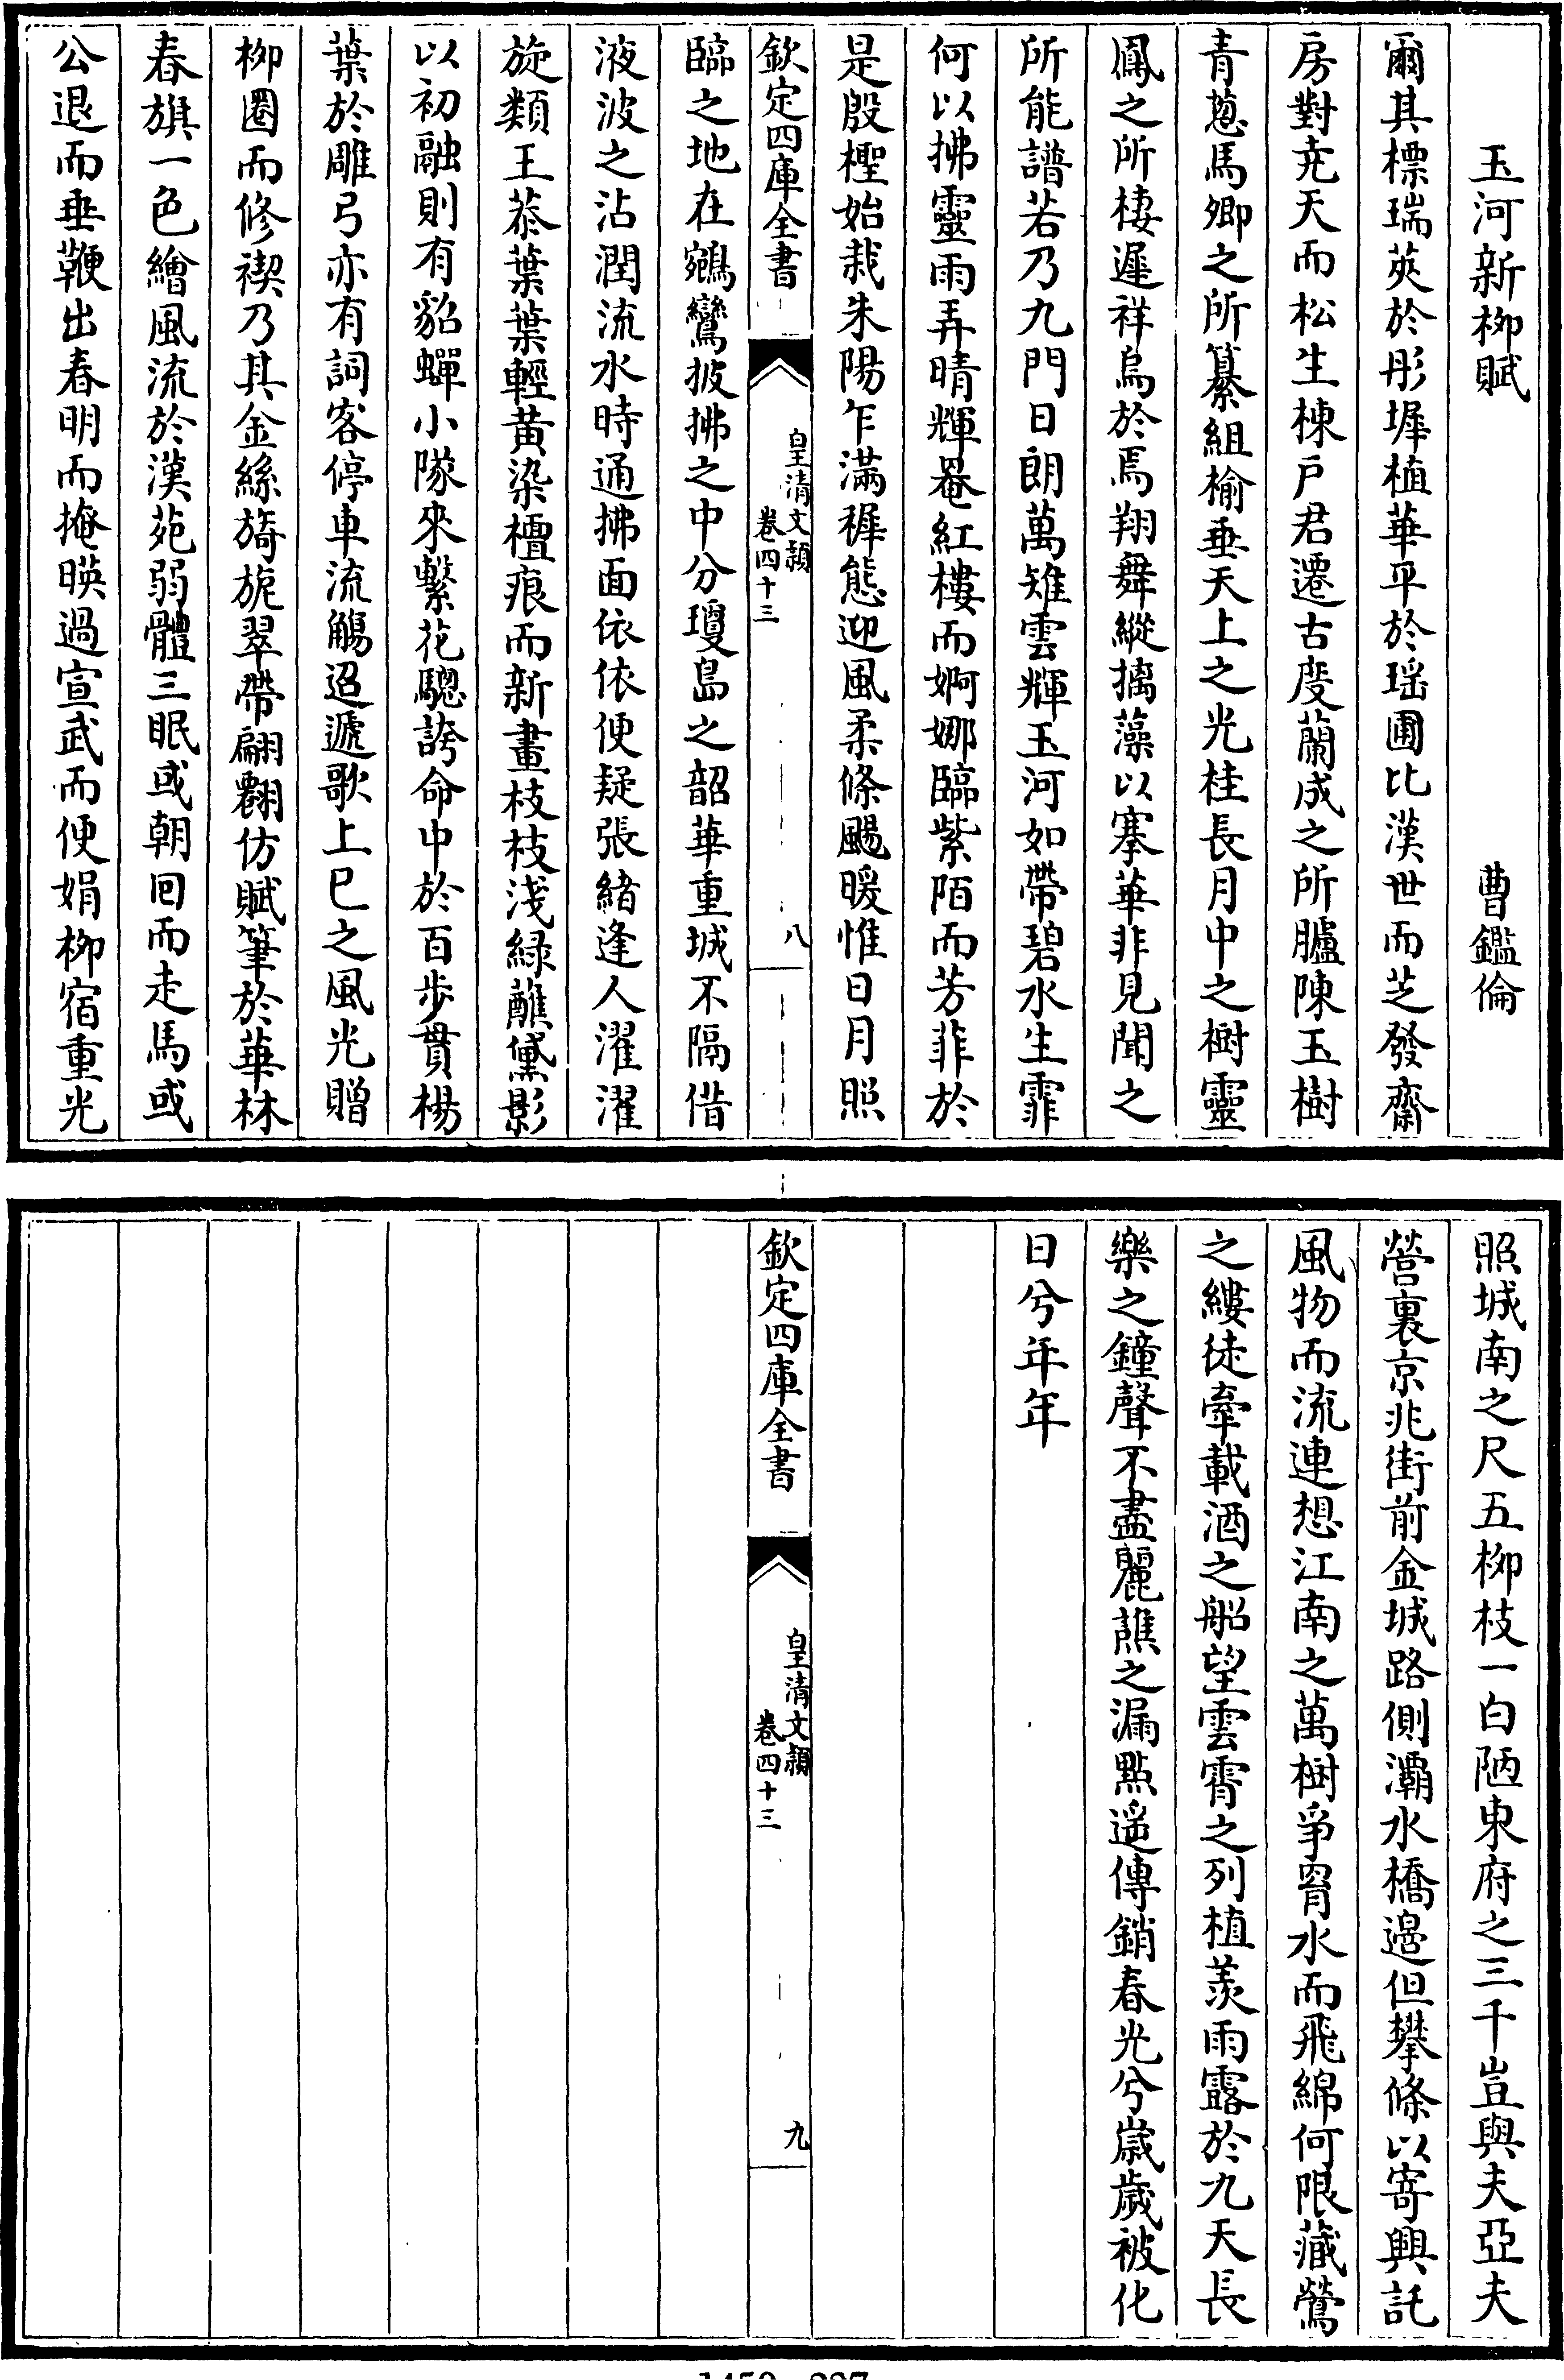 玉河新栁賦 曹鑑倫
爾其標瑞莢於彤墀植華平於瑶圃比漢世而芝發齋
房對尭天而松生棟戸君遷古度蘭成之所臚陳玉樹
青蔥馬卿之所纂組榆垂天上之光桂長月中之樹靈
鳳之所棲遲祥烏於焉翔舞縱摛藻以搴華非見聞之
所能譜若乃九門日朗萬雉雲輝玉河如帶碧水生霏
何以拂靈雨弄晴輝罨紅樓而婀娜臨紫陌而芳菲於
是殷檉始栽朱陽乍滿穉態迎風柔條颺暖惟日月照
欽定四庫全書 皇清文穎 卷四十三 八
臨之地在鵷鸞披拂之中分瓊島之韶華重城不隔借
液波之沾潤流水時通拂面依依便疑張緒逢人濯濯
旋類王恭葉葉輕黄染檀痕而新畫枝枝淺緑蘸黛影
以初融則有貂蟬小隊來繫花驄誇命中於百步貫楊
葉於雕弓亦有詞客停車流觴迢遞歌上巳之風光贈
栁圈而修禊乃其金絲旖旎翠帶翩翻仿賦筆於華林
春旗一色繪風流於漢苑弱體三眠或朝囘而走馬或
公退而垂鞭出春明而掩暎過宣武而便娟栁宿重光
照城南之尺五栁枝一白陋東府之三千豈與夫亞夫
營裏京兆街前金城路側灞水橋邉但攀條以寄興託
風物而流連想江南之萬樹爭胥水而飛綿何限藏鶯
之縷徒牽載酒之船望雲霄之列植羡雨露於九天長
樂之鐘聲不盡麗譙之漏點遥傳銷春光兮歲歲被化
日兮年年
欽定四庫全書 皇清文穎 卷四十三 九